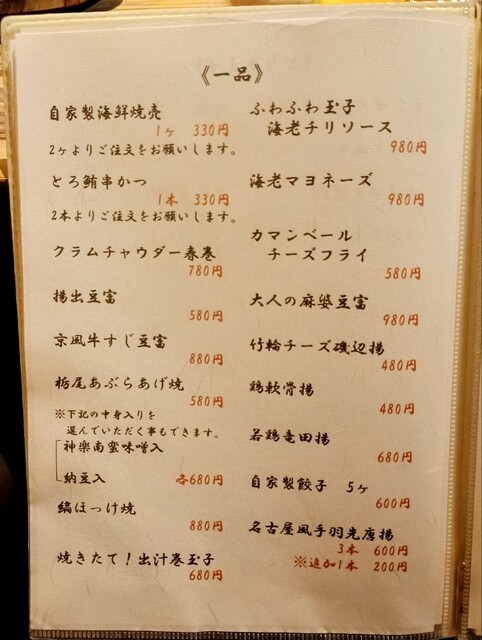 《一品》
自家製海鮮焼売
1ヶ 330円
2ヶよりご注文をお願いします。
とろ鮪串かつ
1本 330円
2本よりご注文をお願いします。
クラムチャウダー春巻
780円
揚出豆富
580円
京風牛すじ豆富
880円
栃尾あぶらあげ焼
580円
※下記の中身入りを
選んでいただく事もできます。
神楽南蛮味噌入
納豆入 各680円
縞ほっけ焼
880円
焼きたて!出汁巻玉子
680円
ふわふわ玉子
海老チリソース
980円
海老マヨネーズ
980円
カマンベール
チーズフライ
580円
大人の麻婆豆富
980円
竹輪チーズ磯辺揚
480円
鶏軟骨揚
480円
若鶏竜田揚
680円
自家製餃子 5ヶ
600円
名古屋風手羽先唐揚
3本 600円
※追加1本 200円